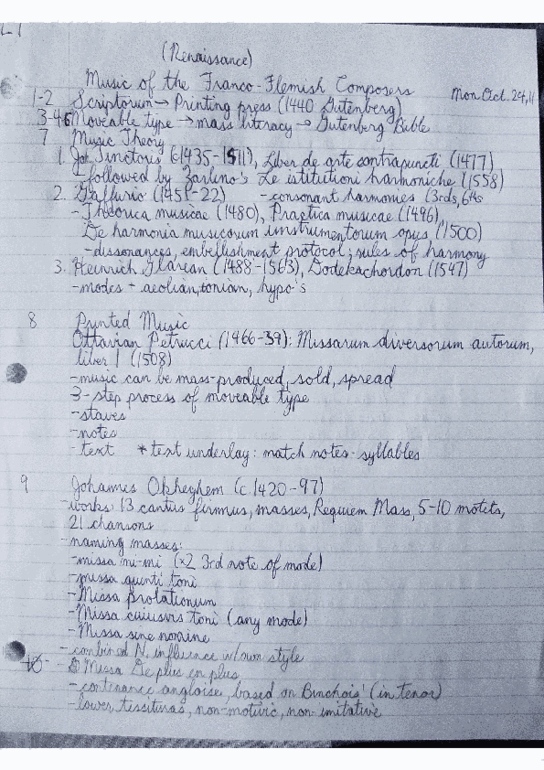 (Renaissance)
Music of the Franco-Flemish Composers Mon Oct. 24, 11
1-2 Scriptorum → Printing press (1440 Gutenberg)
3-4 Moveable type → mass literacy → Gutenberg Bible
7 Music Theory
1. Joh. Tinctoris (c1435-1511), Liber de arte contrapuncti (1477)
- followed by Zarlino's Le istitutioni harmoniche (1558)
2. Gaffurio (1451-22) - consonant harmonies (3rds, 6ths
- Theorica musicae (1480), Practica musicae (1496),
De harmonia musicorum instrumentorum opus (1500)
- dissonances, embellishment protocol; rules of harmony
3. Heinrich Glarean (1488-1563), Dodekachordon (1547)
- modes + aeolian, ionian, hypo's
8 Printed Music
Ottavian Petrucci (1466-39): Missarum diversorum autorum,
liber 1 (1508)
- music can be mass-produced, sold, spread
3-step process of moveable type
- staves
- notes
- text * text underlay: match notes-syllables
9 Johannes Okheghem (c.1420-97)
- works: 13 cantus firmus, masses, Requiem Mass, 5-10 motets,
21 chansons
- naming masses:
- missa mi-mi (x2 3rd note of mode)
- missa quinti toni
- Missa prolationum
- Missa cuiusvis toni (any mode)
- Missa sine nomine
- combined N. influence w/own style
10 - Missa De plus en plus
- contenance angloise, based on Binchois' (in tenor)
- lower tessituras, non-motivic, non-imitative